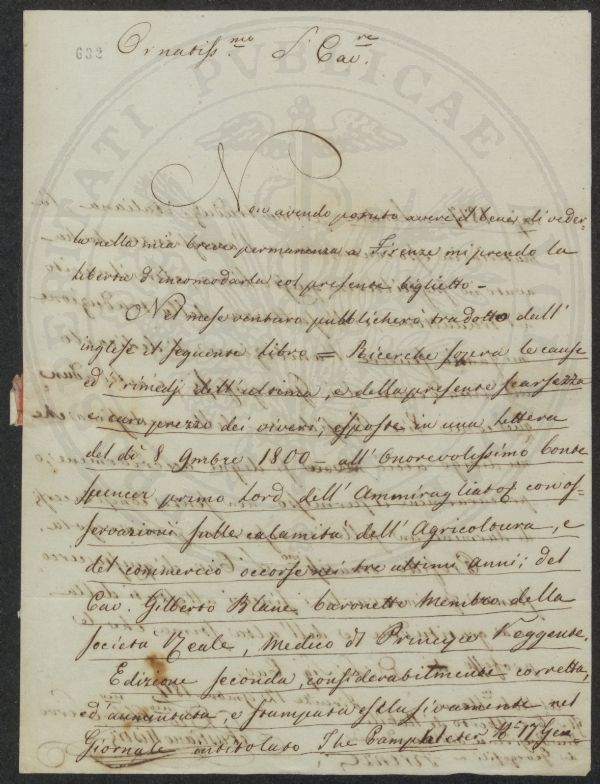 632
Ornatiss.mo S.r Cav.re
Non avendo potuto avere il bene di veder-
la nella mia breve permanenza a Firenze mi prendo la
libertà d'incomodarla col presente biglietto –
Nel mese venturo pubblicherò tradotto dall'
inglese il seguente libro = Ricerche sopra le cause
ed i rimedj dell'ultima, e della presente scarsezza
e caro prezzo dei viveri, esposte in una lettera
del dì 8 9mbre 1800 – all'onorevolissimo Conte
Spencer primo Lord dell'Ammiragliato con os-
servazioni sulle calamità dell'Agricoloura, e
del commercio occorse nei tre ultimi anni; del
Cav. Gilberto Blane baronetto Membro della
società Reale, Medico del Principe Reggente.
Edizione seconda, considerabilmente corretta,
ed aumentata, e stampata esclusivamente nel
Giornale intitolato The Pamphleteer N.o 17 Gen